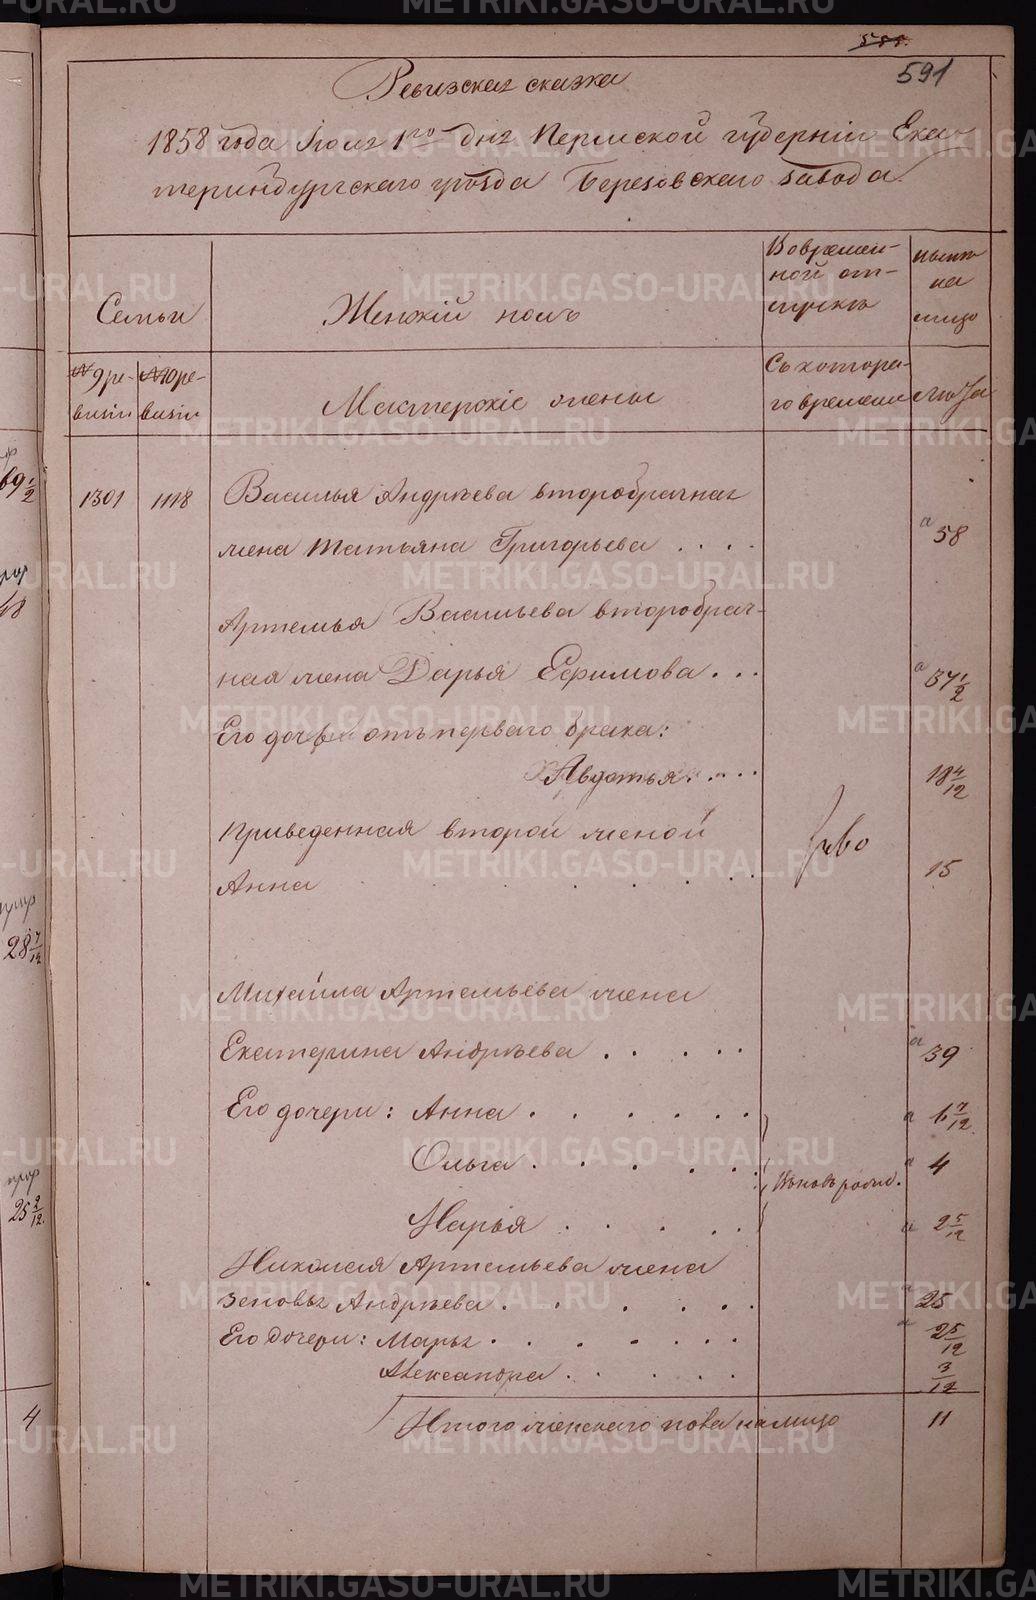 555.
591
Ревизская сказка
1858 года Іюля 1го дня Пермской губерніи Ека-
теринбургскаго уѣзда Березовскаго завода.
Семьи
Женскій полъ
Во времен-
ной от-
лучкѣ
нынѣ
на
лицо
№ 9 ре-
визіи
№ 10 ре-
визіи
Мастерскіе жены
Съ котора-
го времени
лѣта
1301
1118
Василья Андрѣева второбрачная
жена Татьяна Григорьева . . . .
58
Артемья Васильева второбрач-
ная жена Дарья Ефимова . . .
37 1/2
Его дочь отъ перваго брака:
Авдотья . . . .
18 4/12
Приведенная второй женой
Анна . . . . . .
15
Михайла Артемьева жена
Екатерина Андрѣева . . . . .
39
Его дочери: Анна . . . . . .
6 7/12
Ольга . . . . . .
4
Вновь рожд.
Марья . . . . .
2 5/12
Николая Артемьева жена
Зеновья Андрѣева . . . . . .
25
Его дочери: Марья . . . . . .
2 5/12
Александра . . . . .
3/12
Итого женскаго пола на лицо
11
69 1/2
48
28 7/12
25 2/12
4
METRIKI.GASO-URAL.RU